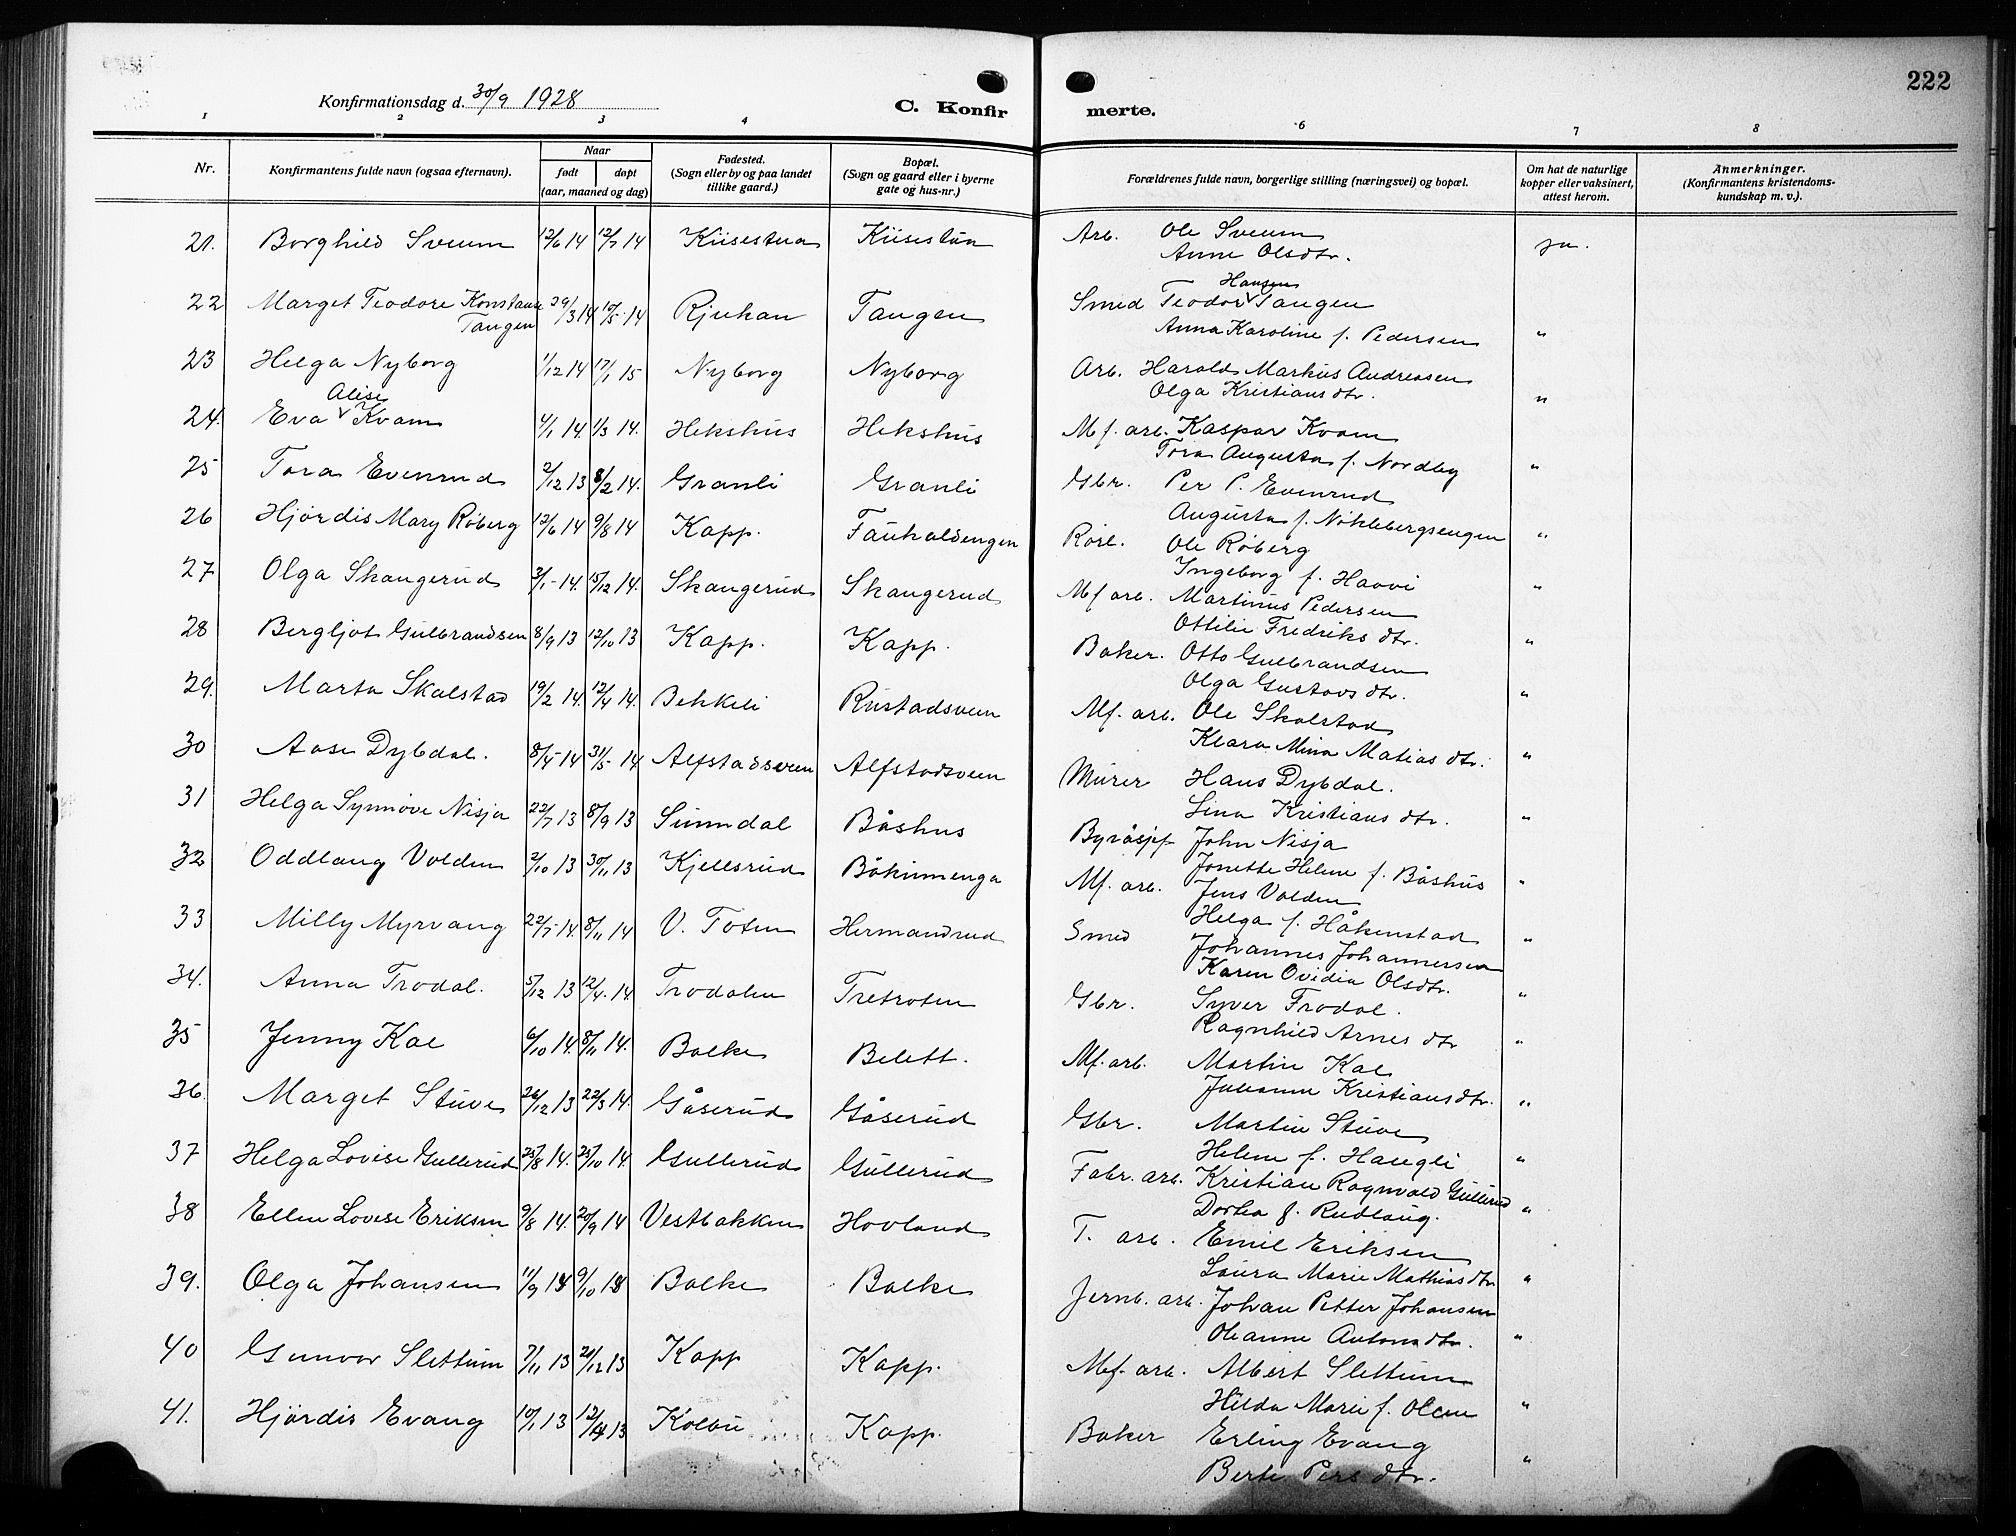 222
Konfirmationsdag d. 30/9 1928
C. Konfirmerte.
1 2 3 4 5 6 7 8
Nr. Konfirmantens fulde navn (ogsaa efternavn). Naar født døpt (aar, maaned og dag) Fødested. (Sogn eller by og paa landet tillike gaard.) Bopæl. (Sogn og gaard eller i byerne gate og hus-nr.) Forældrenes fulde navn, borgerlige stilling (næringsvei) og bopæl. Om hat de naturlige kopper eller vaksinert, attest herom. Anmerkninger. (Konfirmantens kristendoms-kundskap m. v.).
21. Borghild Sveum 12/6 14 12/7 14 Kiisestua Kiisestua Arb. Ole Sveum
Anne Olsdtr. ja.
22 Marget Teodore Konstanse Tangen 29/3 14 10/5 14 Rjukan Tangen Smed Teodor Hansen Tangen
Anna Karoline f. Pedersen "
23 Helga Nyborg 1/12 14 17/1 15 Nyborg Nyborg Arb. Harald Markus Andreasen
Olga Kristians dtr. "
24. Eva Alise Kvam 4/1 14. 1/3 14. Hekshus Hekshus Mf. arb. Kaspar Kvam
Tora Augusta f. Nordby "
25 Tora Evenrud 2/12 13 8/2 14. Granli Granli Gbr. Per P. Evenrud
Augusta f. Nøklebergsengen "
26 Hjørdis Mary Røberg 12/6 14 9/8 14 Kapp. Faukaldengen Rørl. Ole Røberg
Ingeborg f. Haavi "
27 Olga Skangerud 3/1 14. 15/12 14. Skangerud Skangerud Mf arb. Martinus Pedersen
Ottilie Fredriks dtr. "
28 Bergljot Gulbrandsen 8/9 13 12/10 13 Kapp. Kapp. Baker. Otto Gulbrandsen
Olga Gustavs dtr. "
29. Marta Skalstad 19/2 14. 12/4 14. Bekkeli Rustadsveen Mf. arb. Ole Skalstad
Klara Mina Matias dtr. "
30 Aase Dybdal. 8/4 14 31/5 14 Alfstadsveen Alfstadsveen Murer Hans Dybdal.
Lina Kristians dtr. "
31 Helga Synnøve Nisja 22/7 13 8/9 13 Sunndal Båshus Byråsjef John Nisja
Jonette Helene f. Båshus "
32 Oddlaug Volden 2/10 13 30/11 13 Kjellsrud Båkinnenga Mf. arb. Jens Volden
Helga f. Håkenstad "
33 Milly Myrvang 22/7 14. 8/11 14 V. Toten Hermandrud Smed Johannes Johannersen
Karen Ovidia Olsdtr. "
34. Anna Trodal. 5/12 13 12/4 14 Trodalen Tretroten Gbr. Syver Trodal.
Ragnhild Arnes dtr "
35 Jenny Kal 6/10 14. 8/11 14. Balke Belett. Mf. arb. Martin Kal
Julianne Kristiansdtr. "
36. Marget Stuve 26/12 13 22/3 14. Gåserud Gåserud Gbr. Martin Stuve
Helene f. Haugli "
37 Helga Lovise Gullerud 25/8 14. 25/10 14. Gullerud Gullerud Fabr. arb. Kristian Ragnvald Gullerud
Dorthea f. Rudlaug. "
38 Ellen Lovise Eriksen 9/8 14. 20/9 14 Vestbakken Hovland T. arb. Emil Eriksen
Laura Marie Mathiasdtr "
39. Olga Johansen 11/9 13 9/10 13 Balke Balke Jernb. arb. Johan Petter Johansen
Oleanne Antonsdtr. "
40 Gunvor Slettum 7/11 13 21/12 13 Kapp Kapp. Mf. arb. Albert Slettum
Hilda Marie f. Olsen "
41. Hjørdis Evang 10/1 13 12/4 13 Kolbu Kapp. Baker Erling Evang
Berte Pers dtr. "